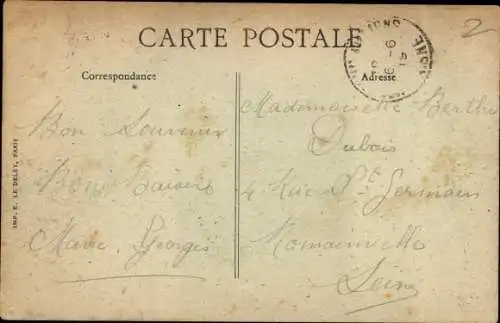 2
CARTE POSTALE
Correspondance
Adresse
Bon Souvenir
Bons Baisers
Marie Georges
Mademoiselle Berthe
Dubois
4 Rue St Germain
Romainville
Seine
IMP. E. LE DELEY, PARIS